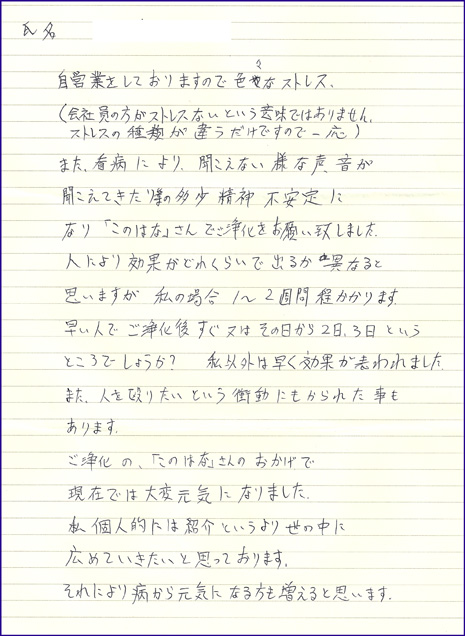 氏名
自営業をしておりますので色々なストレス、
(会社員の方がストレスないという意味ではありません。
ストレスの種類が違うだけですので一応)
また、看病により、聞こえない様な声、音が
聞こえてきたり等の多少精神不安定に
なり「このはな」さんでご浄化をお願い致しました。
人により効果がどれくらいで出るか異なると
思いますが 私の場合 1~2週間程かかります。
早い人でご浄化後すぐ又はその日から2日、3日という
ところでしょうか? 私以外は早く効果が表われました。
また、人を殴りたいという衝動にもかられた事も
あります。
ご浄化の、「このはな」さんのおかげで
現在では大変元気になりました。
私個人的には紹介というより世の中に
広めていきたいと思っております。
それにより病から元気になる方も増えると思います。